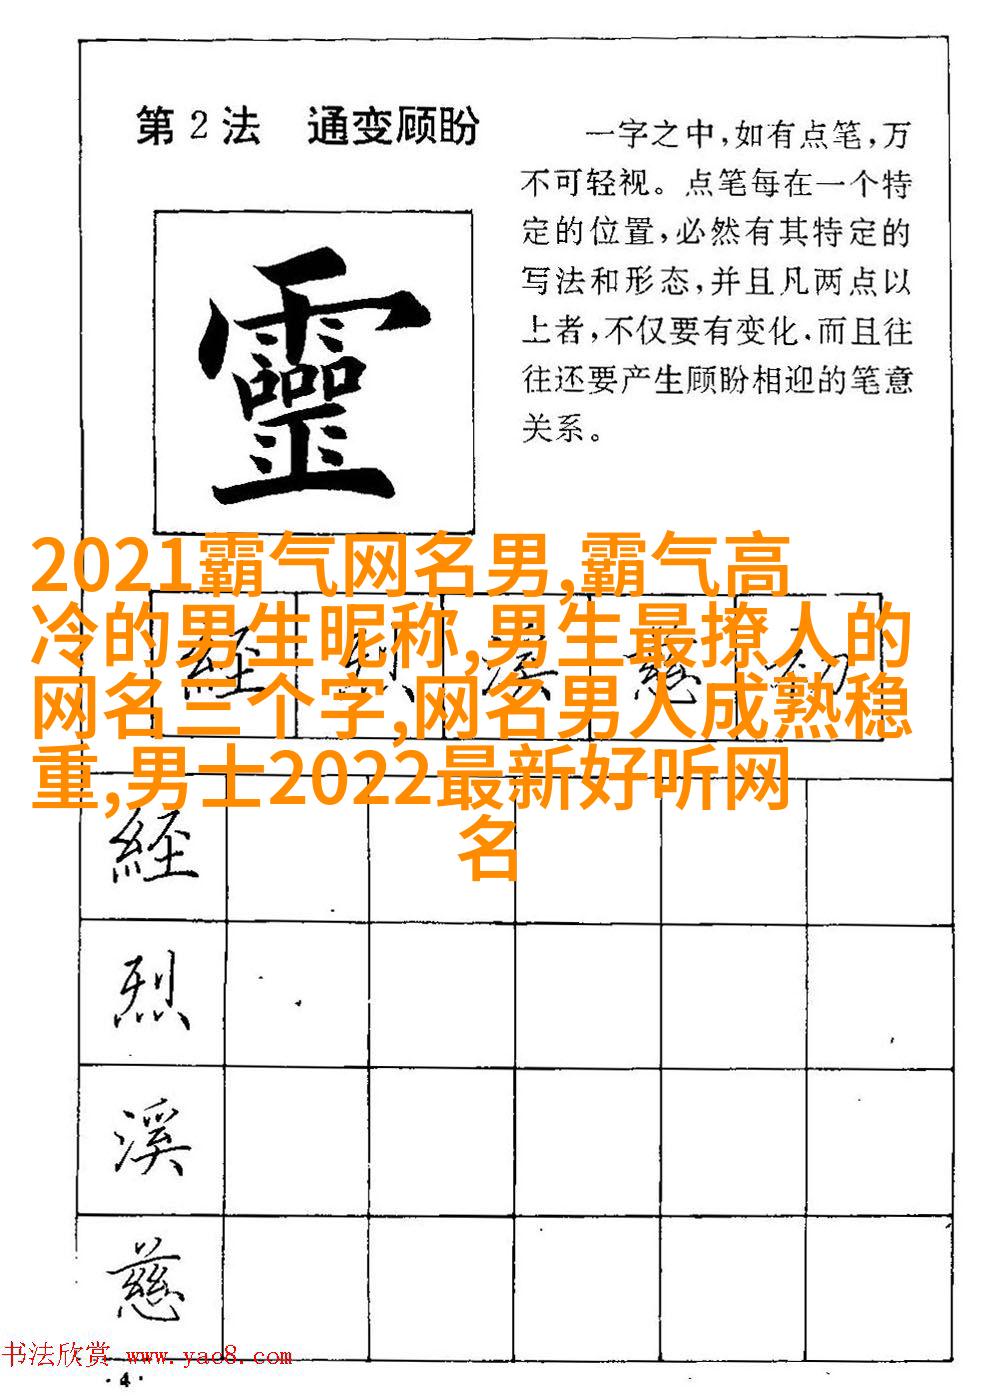 第2法 通变顾盼
一字之中,如有点笔,万
不可轻视。点笔每在一个特
定的位置,必然有其特定的
写法和形态,并且凡两点以
上者,不仅要有变化.而且往
往还要产生顾盼相迎的笔意
关系。
靈
2021霸气网名男,霸气高
冷的男生昵称,男生最撩人的
网名三个字,网名男人成熟稳
重,男士2022最新好听网
名
經 烈 溪 慈
經
烈
溪
慈
书法欣赏 www.yao8.com
·4·